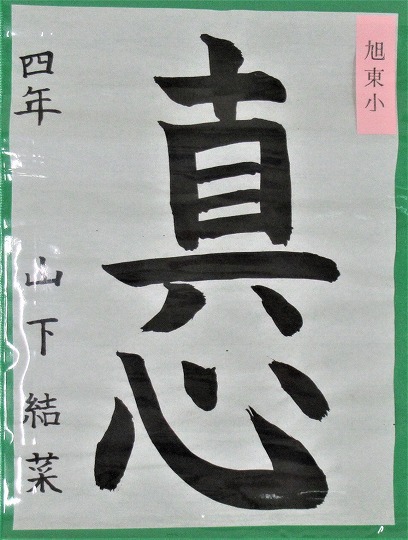 旭東小
真心
四年 山下結菜